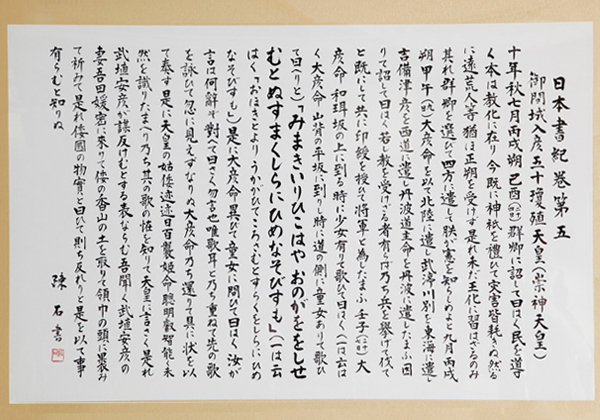 日本書紀巻第五
御間城入彦五十瓊殖天皇(崇神天皇)
十年秋七月丙戌朔己酉群卿に詔して曰はく民を導
く本は教化に在り今既に神祇を禮ひて灾害皆耗きぬ然る
に遠荒人等猶ほ正朔を受けず是れ未だ王化に習はざるのみ
其れ群卿を選びて四方に遣して朕が憲を知らしめよと九月丙戌
朔甲午大彦命を以て北陸に遣し武渟川別を東海に遣し
吉備津彦を西道に遣し丹波道主命を丹波に遣したまふ因
りて詔して曰はく若し教を受けざる者有らば乃ち兵を挙げて伐て
と既にして共に印綬を授ひて将軍と為したまふ壬子大
彦命和珥坂の上に到る時に少女有りて歌ひて曰はく(一は云は
く大彦命山背の平坂に到りし時に道の側に童女ありて歌ひ
て曰(り)と)「みまきいりひこはやおのがををしせ
むとぬすまくしらにひめなそびすも」(一は云
はく「おほきとよりうかかひてころさむとすらくをしらにひめ
なそびすも」)是に大彦命異びて童女に問ひて曰はく汝が
言は何辭ぞ對へて曰さく勿言也唯歌耳と乃ち重ねて先の歌
を詠ひて忽に見えずなりぬ大彦命乃ち還りて具に状を以
て奏す是に天皇の姑倭迹迹日百襲姫命聰明叡智能く未
然を識りたまへり乃ち其の歌の怪を知りて天皇に言さく是れ
武埴安彦が謀反けむとする表ならむ吾聞く武埴安彦の
妻吾田媛密に来りて倭の香山の土を取りて領巾の頭に裹み
て祈みて是れ倭國の物實と曰ひて則ち反れりと是を以て事
有らむと知りぬ
石書